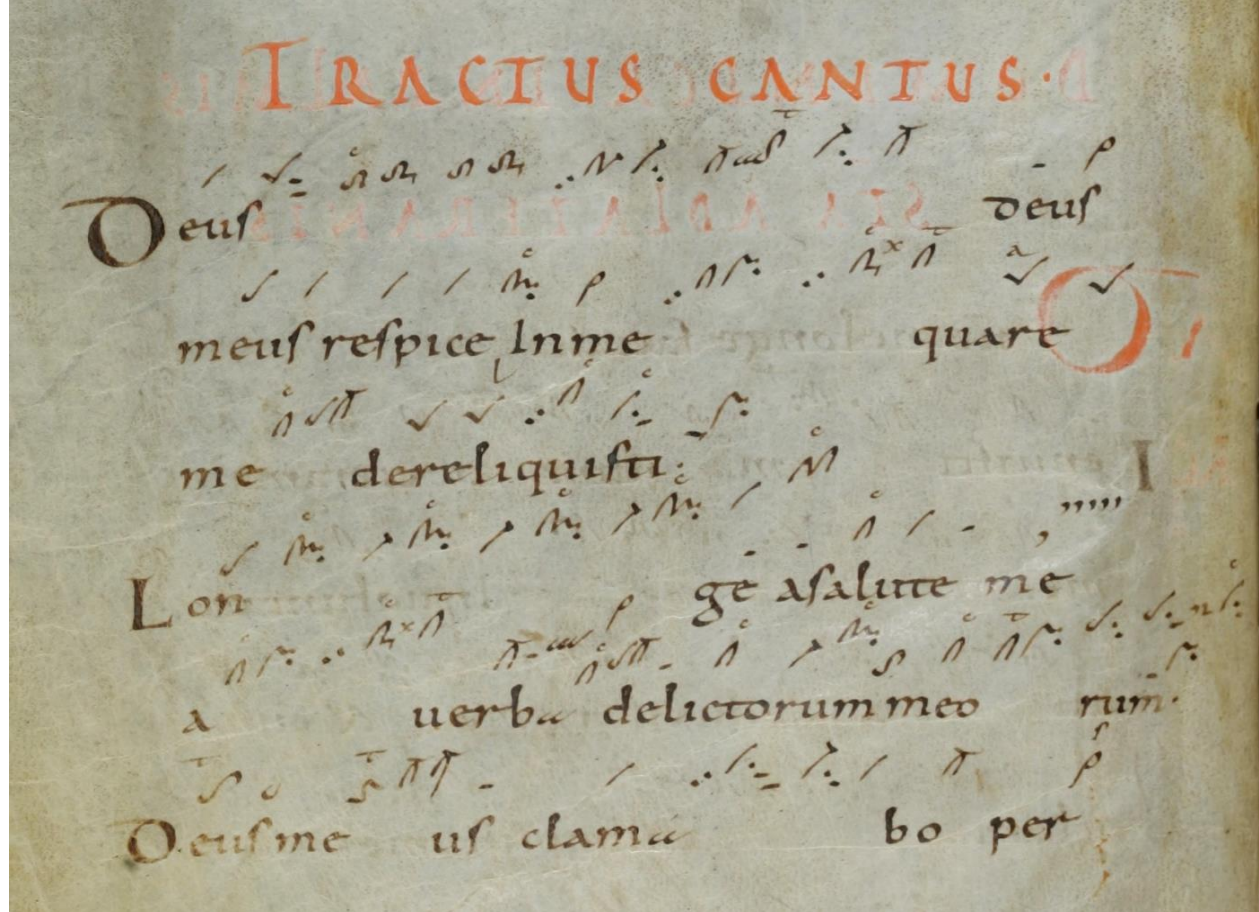 TRACTUS CANTUS·
Deus deus
meus respice Inme quare
me dereliquisti:
Lon ge asalute me
a uerba delictorum meo rum·
Deus me us clama bo per